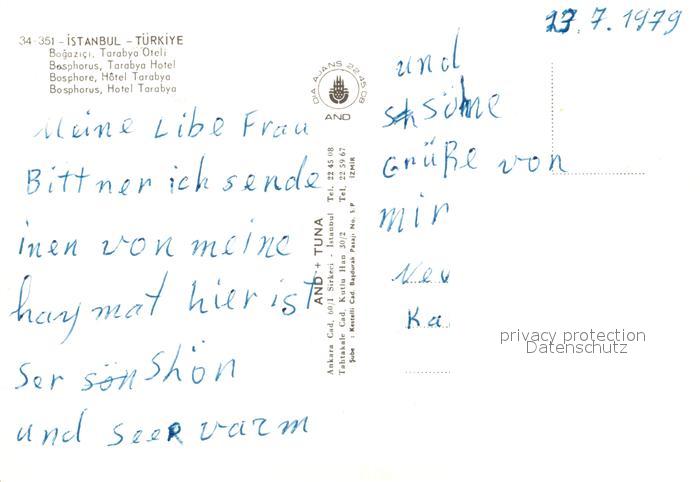 34-351 - İSTANBUL - TÜRKİYE
Boğaziçi, Tarabya Oteli
Bosphorus, Tarabya Hotel
Bosphore, Hôtel Tarabya
Bosporus, Hotel Tarabya
Meine Libe Frau
Bittner ich sende
inen von meine
haymat hier ist
ser sön Shön
und seer varm
DIA AJANS 22 45 08
AND
AND + TUNA
Ankara Cad. 60/1 Sirkeci - İstanbul Tel. 22 45 08
Tahtakale Cad. Kutlu Han 50/2 Tel. 22 59 67
Şube : Kestelli Cad. Başdurak Pasajı No. 5 P İZMİR
23.7.1979
und
söhne
Grüße von
mir
Nev
Ka
privacy protection
Datenschutz